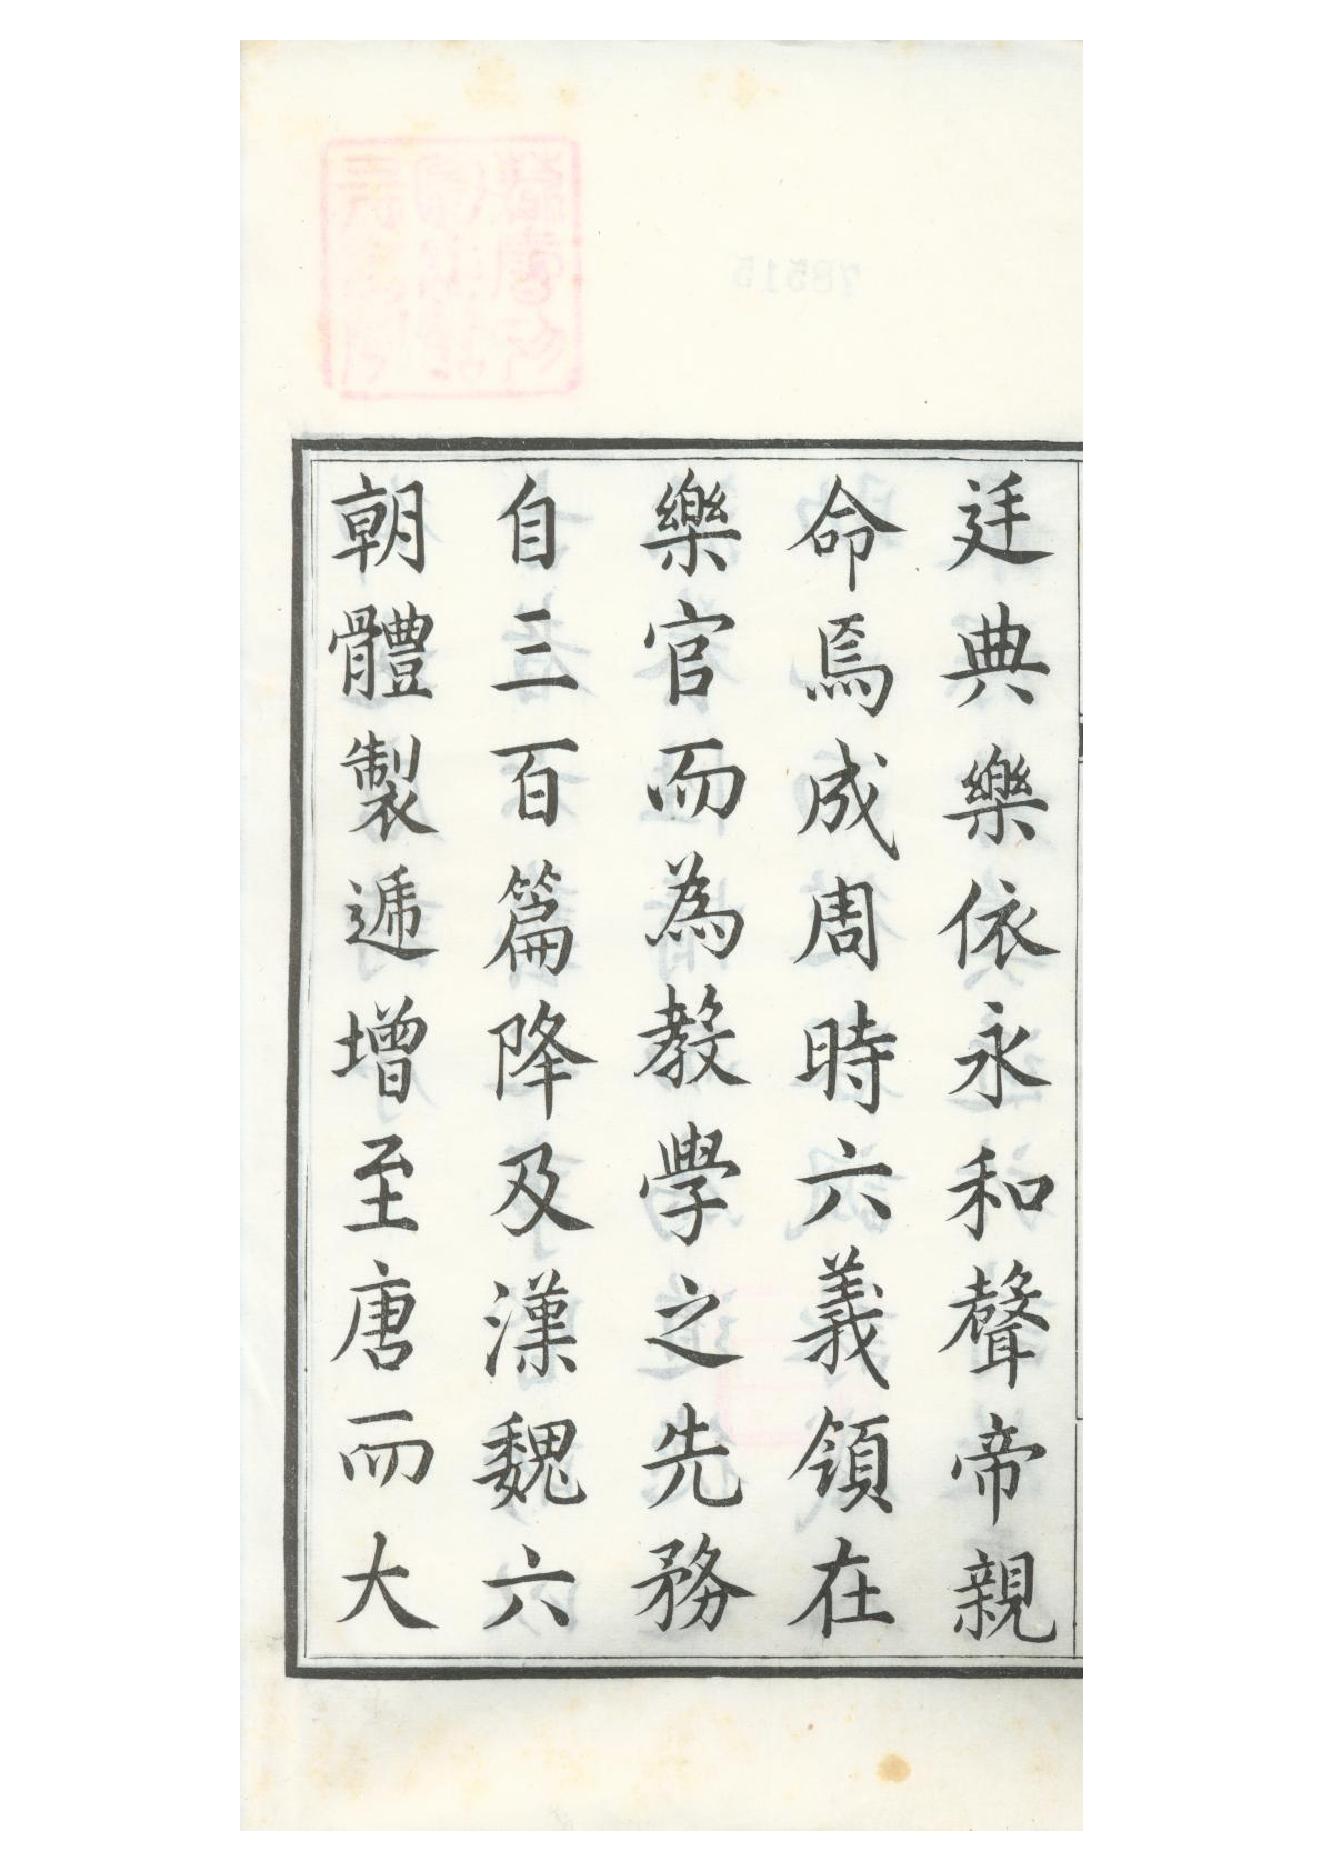 廷典樂依永和聲帝親
命焉成周時六義領在
樂官而為教學之先務
自三百篇降及漢魏六
朝體製遞增至唐而大
78515